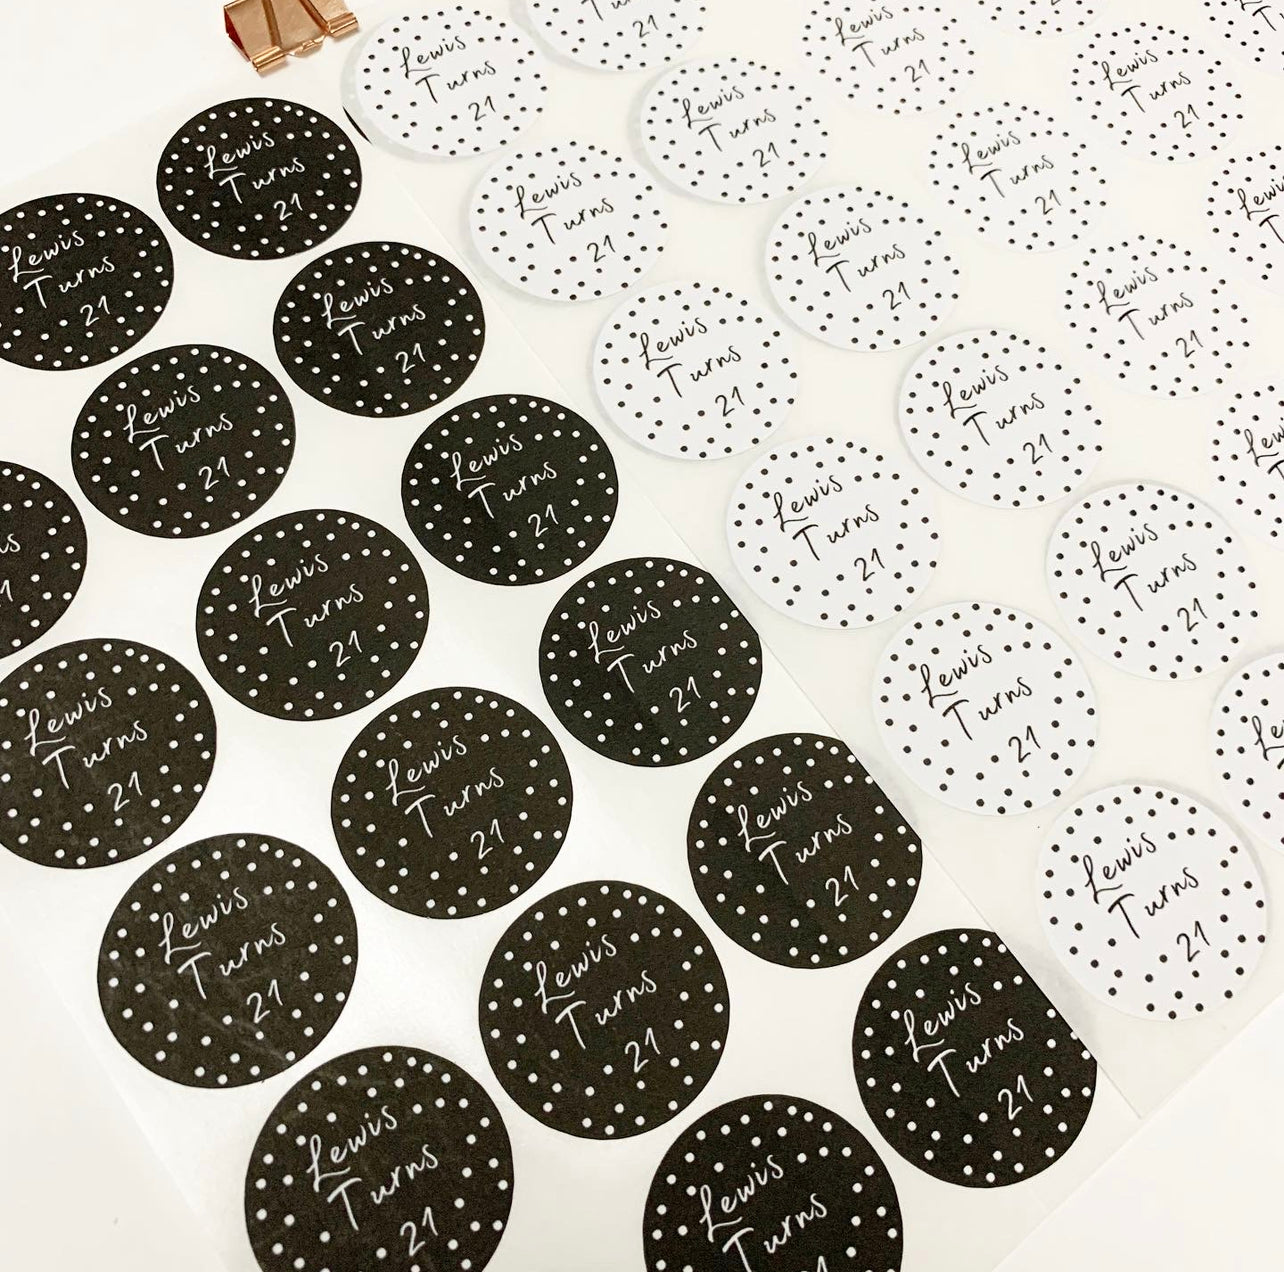 Lewis
Turns
21
Lewis
Turns
21
Lewis
Turns
21
Lewis
Turns
21
Lewis
Turns
21
Lewis
Turns
21
Lewis
Turns
21
Lewis
Turns
21
Lewis
Turns
21
Lewis
Turns
21
Lewis
Turns
21
Lewis
Turns
21
Lewis
Turns
21
Lewis
Turns
21
Lewis
Turns
Turns
21
Lewis
Turns
21
Lewis
Turns
21
Lewis
Turns
21
Lewis
Turns
21
Lewis
Turns
21
Lewis
Turns
21
Lewis
Turns
21
Lewis
Turns
21
Lewis
Turns
21
Lewis
Turns
21
Lewis
Turns
21
Lewis
Turns
21
Lewis
Turns
21
Lewis
Turns
21